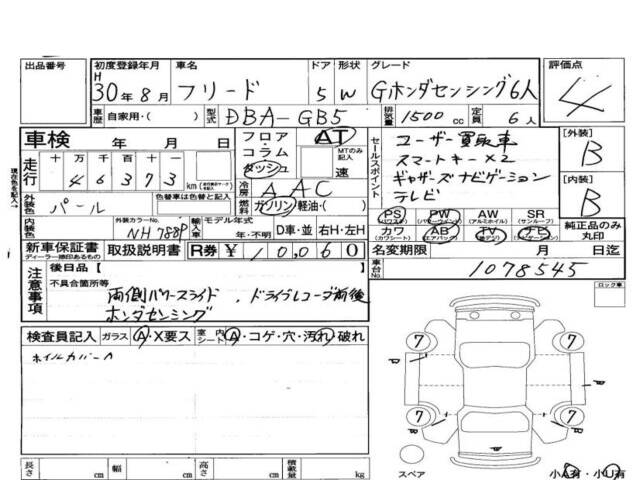 出品番号
初度登録年月 車名 ドア 形状 グレード 評価点
H 30年 8月 フリード 5 W Gホンダセンシング6人 4
車歴 自家用・( ) 型式 DBA-GB5 排気量 1500 cc 定員 6人
車検 年 月 日
フロア コラム ダッシュ AT MTのみ記入 速
セールスポイント
ユーザー買取車
スマートキー×2
ギャザーズナビゲーション
テレビ
[外装] B
[内装] B
現在色を記入→
走行 十万千百十一 46373 km
冷房 AAC
外装色 パール 色替車は色替と記入
燃料 ガソリン・軽油・( )
PS (パワステ) PW AW (アルミホイル) SR (サンルーフ)
カワ (カワシート) AB (エアバック) TV ナビ
純正品のみ丸印
内装色 外装カラーNo. NH788P
輸入車 モデル年式 年・不明 D車・並 右H・左H
名変期限 月 日迄
新車保証書 取扱説明書 R券 ¥10,060
ディーラー捺印あるもの
車台No. 1078545
注意事項
後日品[ ]
不具合箇所等
両側パワースライド、ドライブレコーダ前後
ホンダセンシング
ロック車
検査員記入 ガラス A・X要ス 室内シート A・コゲ・穴・汚れ・破れ
ホイルカバーA
7 7
7 7
長さ cm 幅 cm 高さ cm 積載量 kg
スペア
小A有・小U有